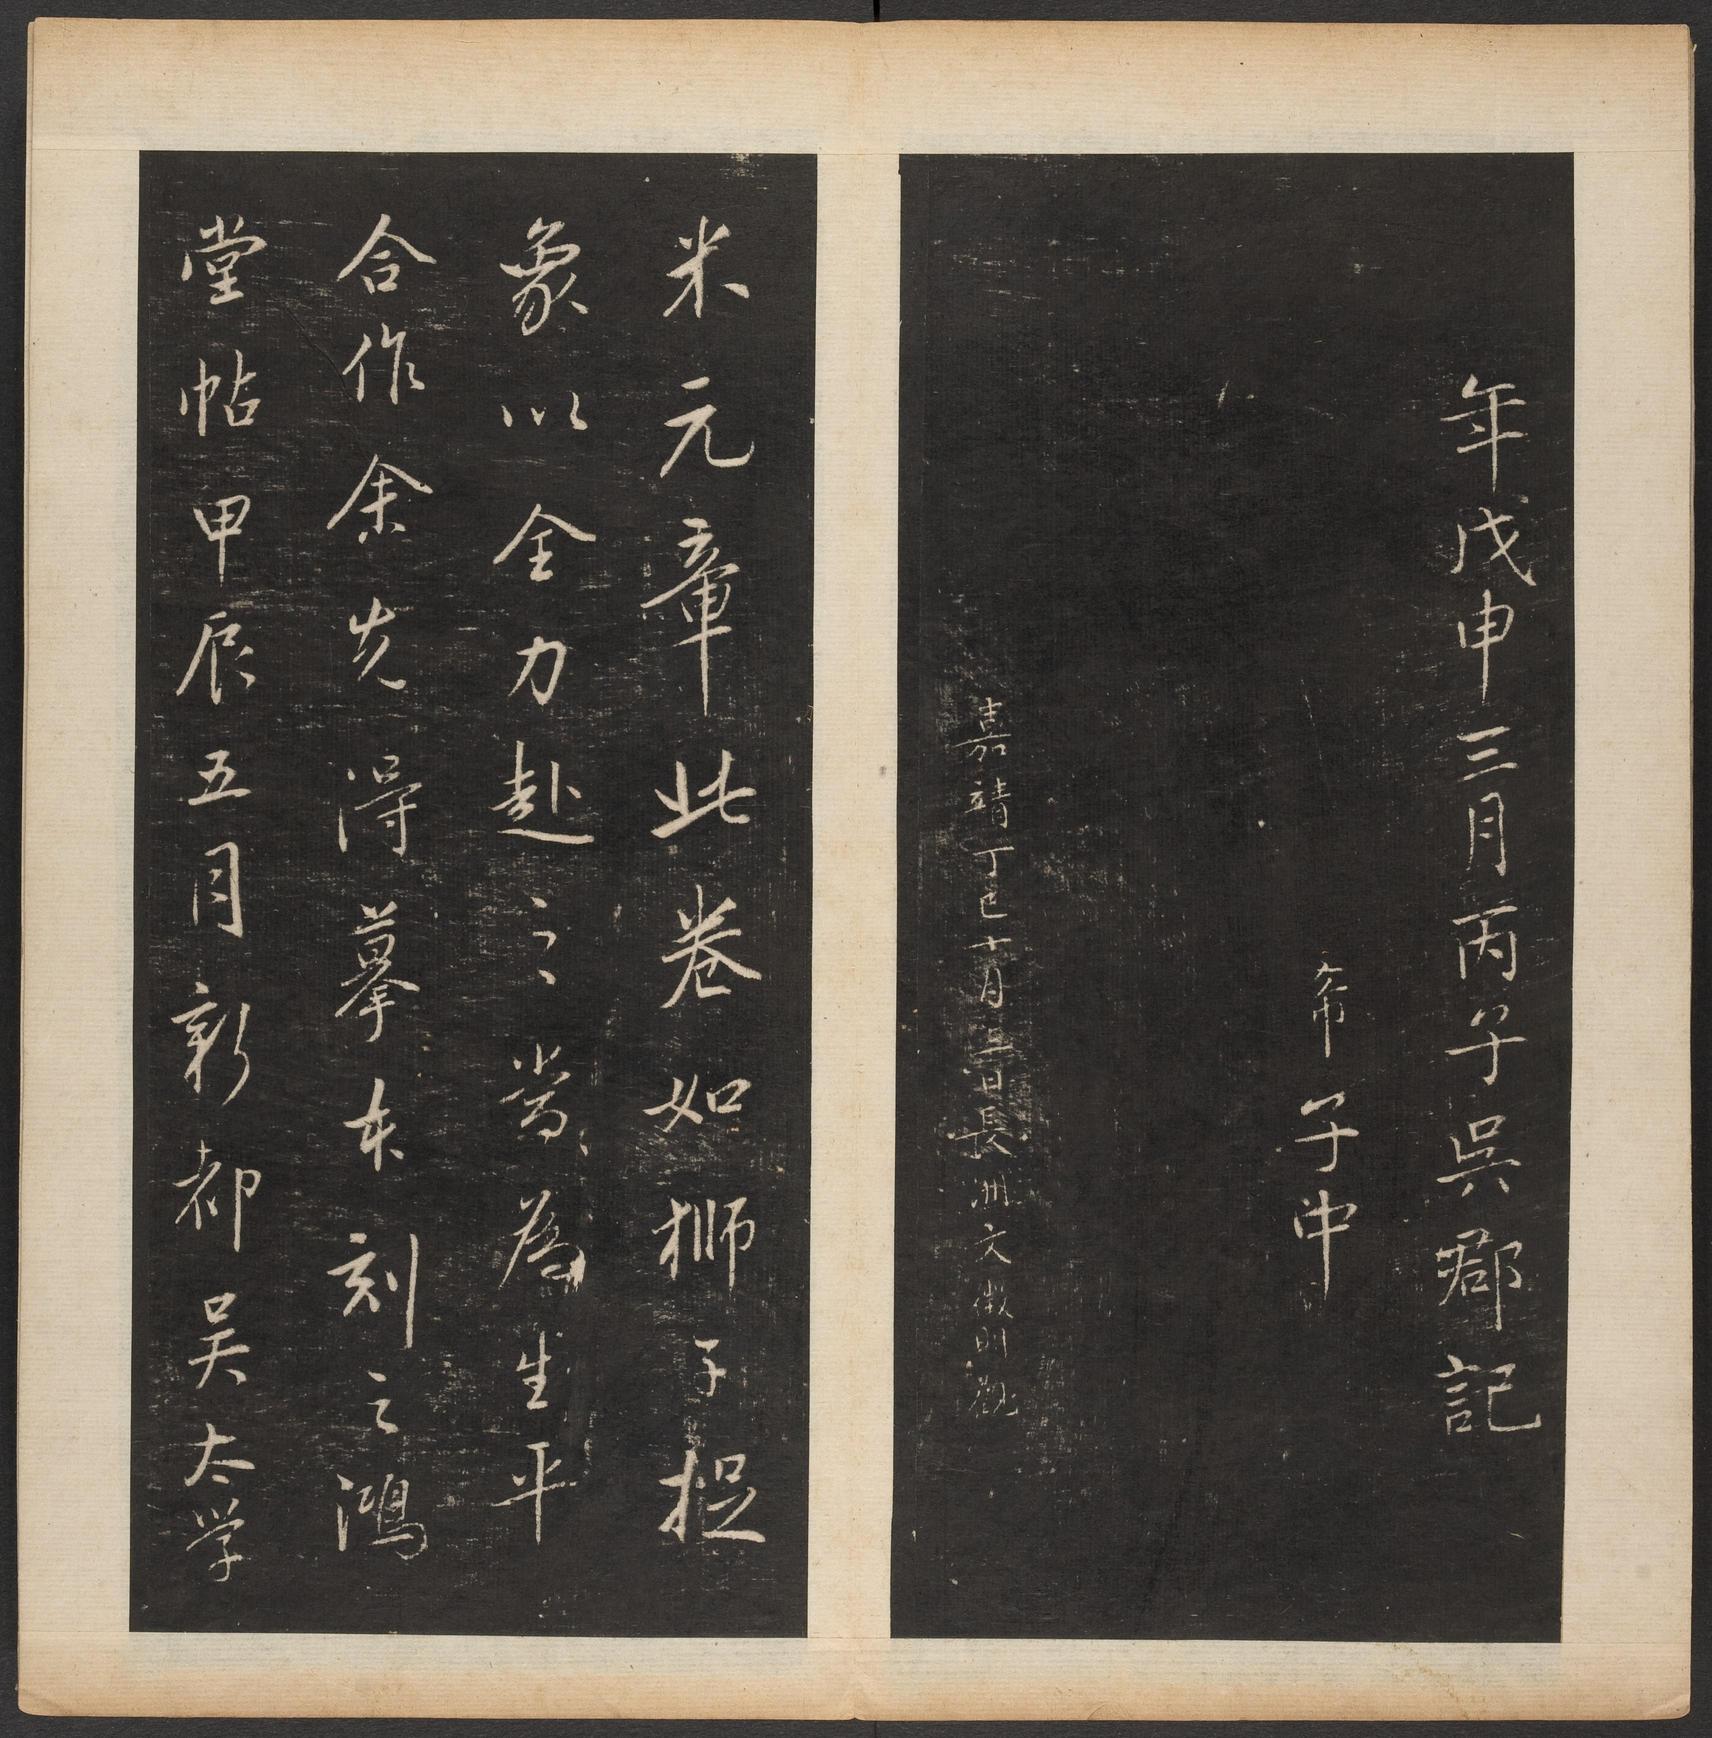 年戊申三月丙子吳郡記
希子中
嘉靖丁巳十月三日長洲文徵明觀
米元章此卷如獅子捉
象以全力赴之當為生平
合作余先得摹本刻之鴻
堂帖甲辰五月新都吳太學